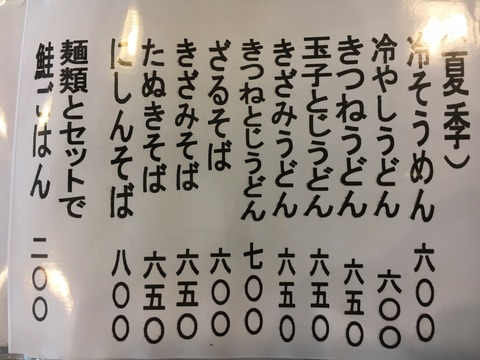 夏季)
冷そうめん 六〇〇
冷やしうどん 六〇〇
きつねうどん 六五〇
玉子とじうどん 六五〇
きざみうどん 六五〇
きつねとじうどん 七〇〇
ざるそば 六〇〇
きざみそば 六五〇
たぬきそば 六五〇
にしんそば 八〇〇
麺類とセットで
鮭ごはん 二〇〇